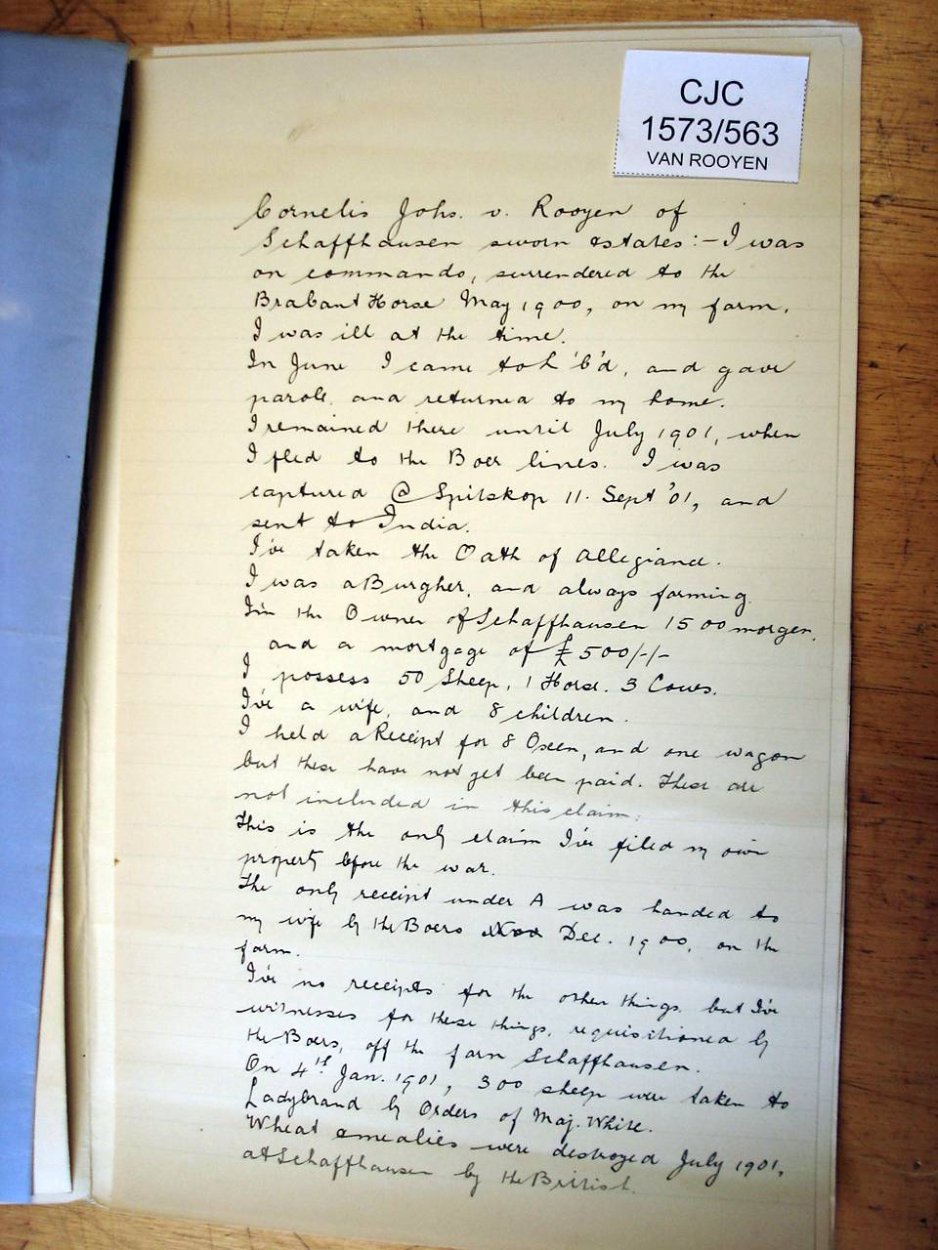 CJC
1573/563
VAN ROOYEN
Cornelis Johs. v. Rooyen of
Schaffhausen sworn states:- I was
on commando, surrendered to the
Brabant Horse May 1900, on my farm.
I was ill at the time.
In June I came to L'b'd, and gave
parole and returned to my home.
I remained there until July 1901, when
I fled to the Boer lines. I was
captured @ Spitskop 11. Sept '01, and
sent to India.
I've taken the Oath of Allegiance.
I was a Burgher, and always farming.
I'm the Owner of Schaffhausen 1500 morgen,
and a mortgage of £500/-/-
I possess 50 Sheep, 1 Horse. 3 Cows.
I've a wife, and 8 children.
I held a Receipt for 8 Oxen, and one wagon
but these have not yet been paid. These are
not included in this claim.
This is the only claim I've filed my own
property before the war.
The only receipt under A was handed to
my wife by the Boers Dec. 1900, on the
farm.
I've no receipts for the other things, but I've
witnesses for these things, requisitioned by
the Boers, off the farm Schaffhausen.
On 4th Jan. 1901, 300 sheep were taken to
Ladybrand by Orders of Maj. White.
Wheat & mealies were destroyed July 1901,
at Schaffhausen by the British.